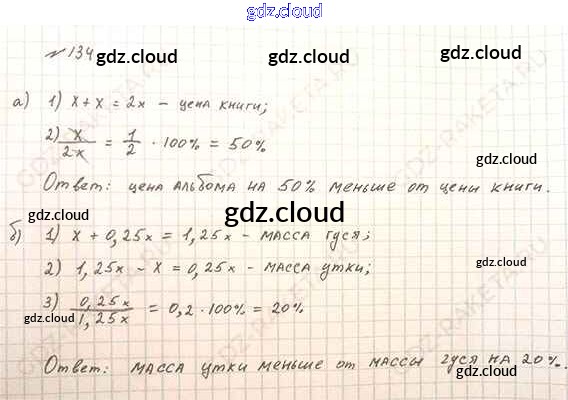 gdz.cloud
№ 134
gdz.cloud
gdz.cloud
а) 1) x + x = 2x – цена книги;
2) x/2x = 1/2 · 100% = 50%
gdz.cloud
Ответ: цена альбома на 50% меньше от цены книги.
gdz.cloud
gdz.cloud
б) 1) x + 0,25x = 1,25x – масса гуся;
2) 1,25x – x = 0,25x – масса утки;
gdz.cloud
3) 0,25x/1,25x = 0,2 · 100% = 20%
gdz.cloud
Ответ: масса утки меньше от массы гуся на 20%.
gdz.cloud
GDZ-RAKETA.RU